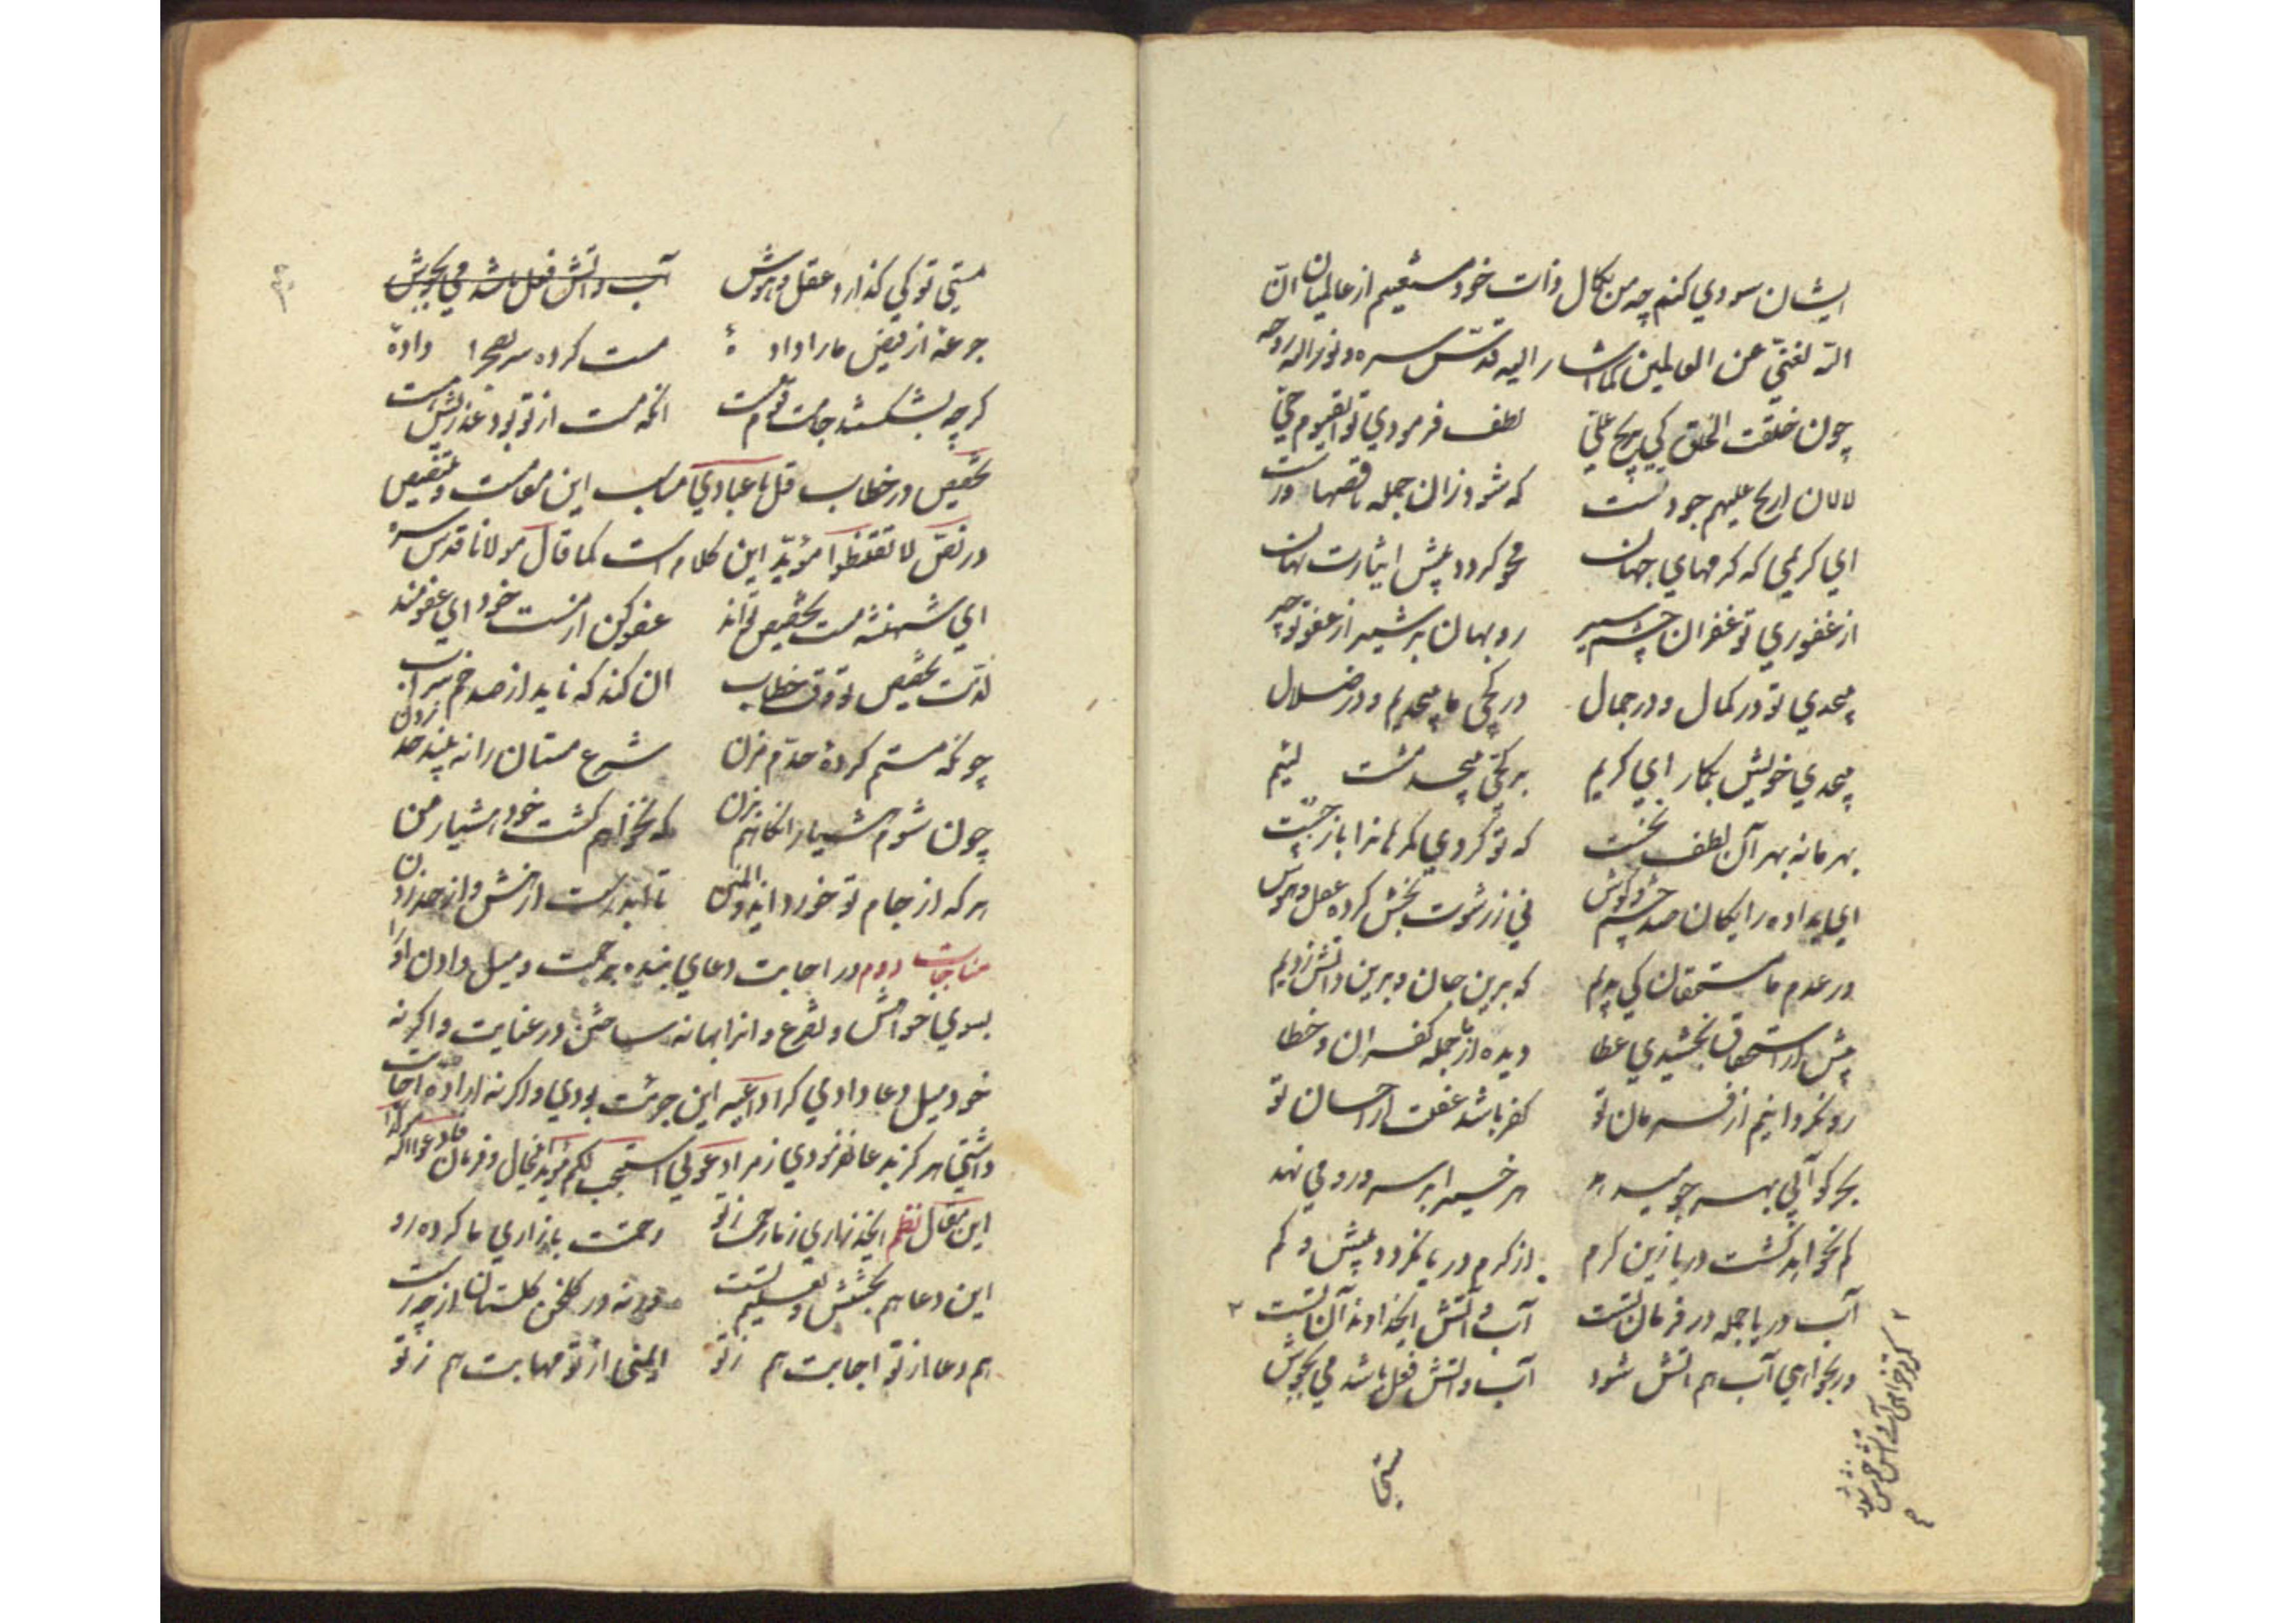 ایشان سودي كنم چه من بكمال ذات خود مستغنیم از عالمیان انّ
الله لغنيّ عن العالمین كما اشار الیه قدّس سره و نور الله روحه
چون خلقت الخلق كي یربح عليّ لطف فرمودي تو اي قیوم حيّ
لا لان اربح علیهم جود تست كه شود زان جمله ناقصها درست
اي كریمي كه كرمهاي جهان محو كردد پیش ایثارت نهان
از غفوري تو غفران چشم سیر روبهان بر شیر از عفو تو چیر
بیحدي تو در كمال و در جمال در كجي ما بیحدیم و در ضلال
بیحدي خویش بكمار اي كریم بر كجيّ بیحد مشت لئیم
بهر ما نه بهر آن لطف نخست كه تو كردي كمرهانرا باز جست
اي بداده رایكان صد چشم و كوش ني ز رشوت بخش كرده عقل و هوش
در عدم ما مستحقان كي بدیم كه برین جان و برین دانش زدیم
پیش از استحقاق بخشیدي عطا دیده از ما جمله كفران و خطا
رو نكردانیم از فرمان تو كفر باشد غفلت از احسان تو
بحر كو آبي بهر جو میدهد هر خسیرا بر سر و رو مي نهد
كم نخواهد كشت دریا زین كرم از كرم دریا نكردد بیش و كم
آب دریا جمله در فرمان تست آب و آتش ایخداوند آن تست ٢
ور بخواهي آب هم آتش شود آب و اتش فعل باشد مي بجوش
كر تو خواهي آتش آب خوش شود
مستي
مستي تو كي كذارد عقل و هوش آب و اتش فعل باشد مي بجوش
جرعهٔ از فیض ما را داده‌ٔ مست كرده سر بصحرا دادهٔ
كرچه بشكستند جامت قوم مست انكه مست از تو بود عذریش هست
تخصیص در خطاب قل یا عبادي مناسب این مقامست و تنصیص
در نصّ لا تقنطوا مؤیّد این كلام است كما قال مولانا قدس سره
اي شهنشه مست تخصیص تو اند عفو كن از مست خود اي عفو مند
لذّت تخصیص تو وقت خطاب ان كند كه ناید از صد خم شراب
چونكه مستم كردهٔ حدّم مزن شرع مستان را نه بیند حد زدن
چون شوم هشیار انكاهم بزن كه نخواهم كشت خود هشیار من
هر كه از جام تو خورد ای ذو المنن تا ابد رست از هش و از حد زدن
مناجات دوم در اجابت دعاي بنده برحمت و میل دادن او را
بسوي خواهش و تضرع و انرا بهانه ساختن در عنایت و اكر نه
خود میل دعا دادي كرا داعیه این جرئت بودي و اكر نه ارادّه اجابت
داشتي هركز بدعا نفرمودي ز مر ادعوني استجب لكم مؤید انحال و فرمان فادعوا الله
این مقال نظم ایخدا زاري ز ما رحمت ز تو رحمتت با زاري ما كرده رو
این دعا هم بخشش و تعلیم تست ورنه در كلخن كلستان از چه رست
هم دعا از تو اجابت هم ز تو ایمني از تو مهابت هم ز تو